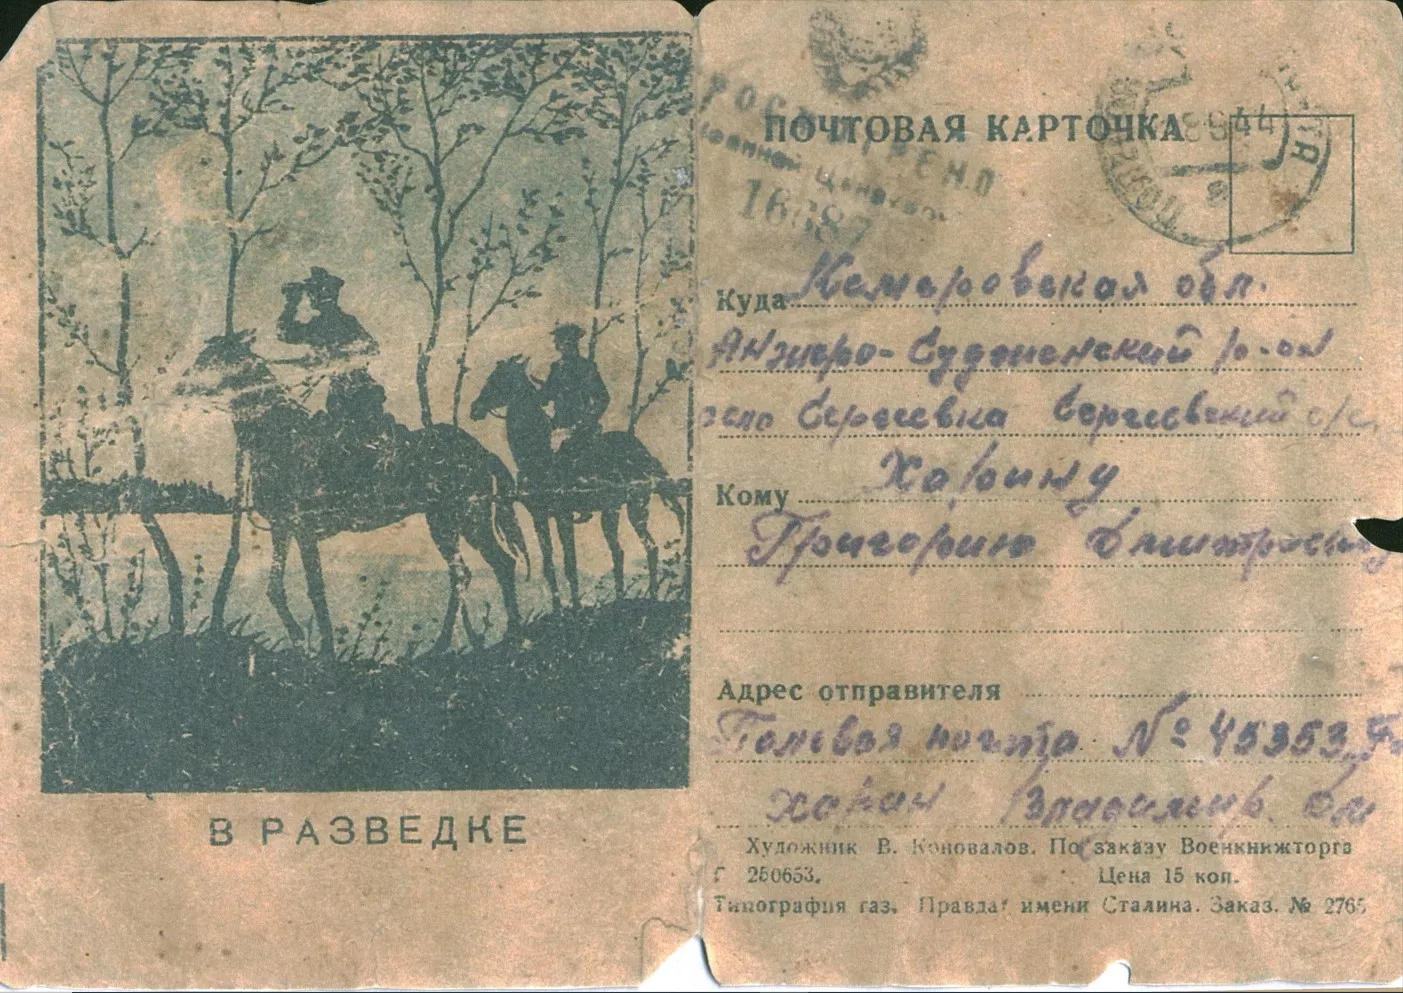 В РАЗВЕДКЕ
ПРОСМОТРЕНО
Военной Цензурой
16687
ПОЧТОВАЯ КАРТОЧКА
44
Куда Кемеровская обл.
Анжеро-Судженский р-он
село Сергеевка Сергеевский с/с
Кому Харину
Григорию Дмитриевичу
Адрес отправителя
Полевая почта № 45353
Харин Владимир
Художник В. Коновалов. По заказу Военкнижторга
Г 250653. Цена 15 коп.
Типография газ. „Правда“ имени Сталина. Заказ. № 2765